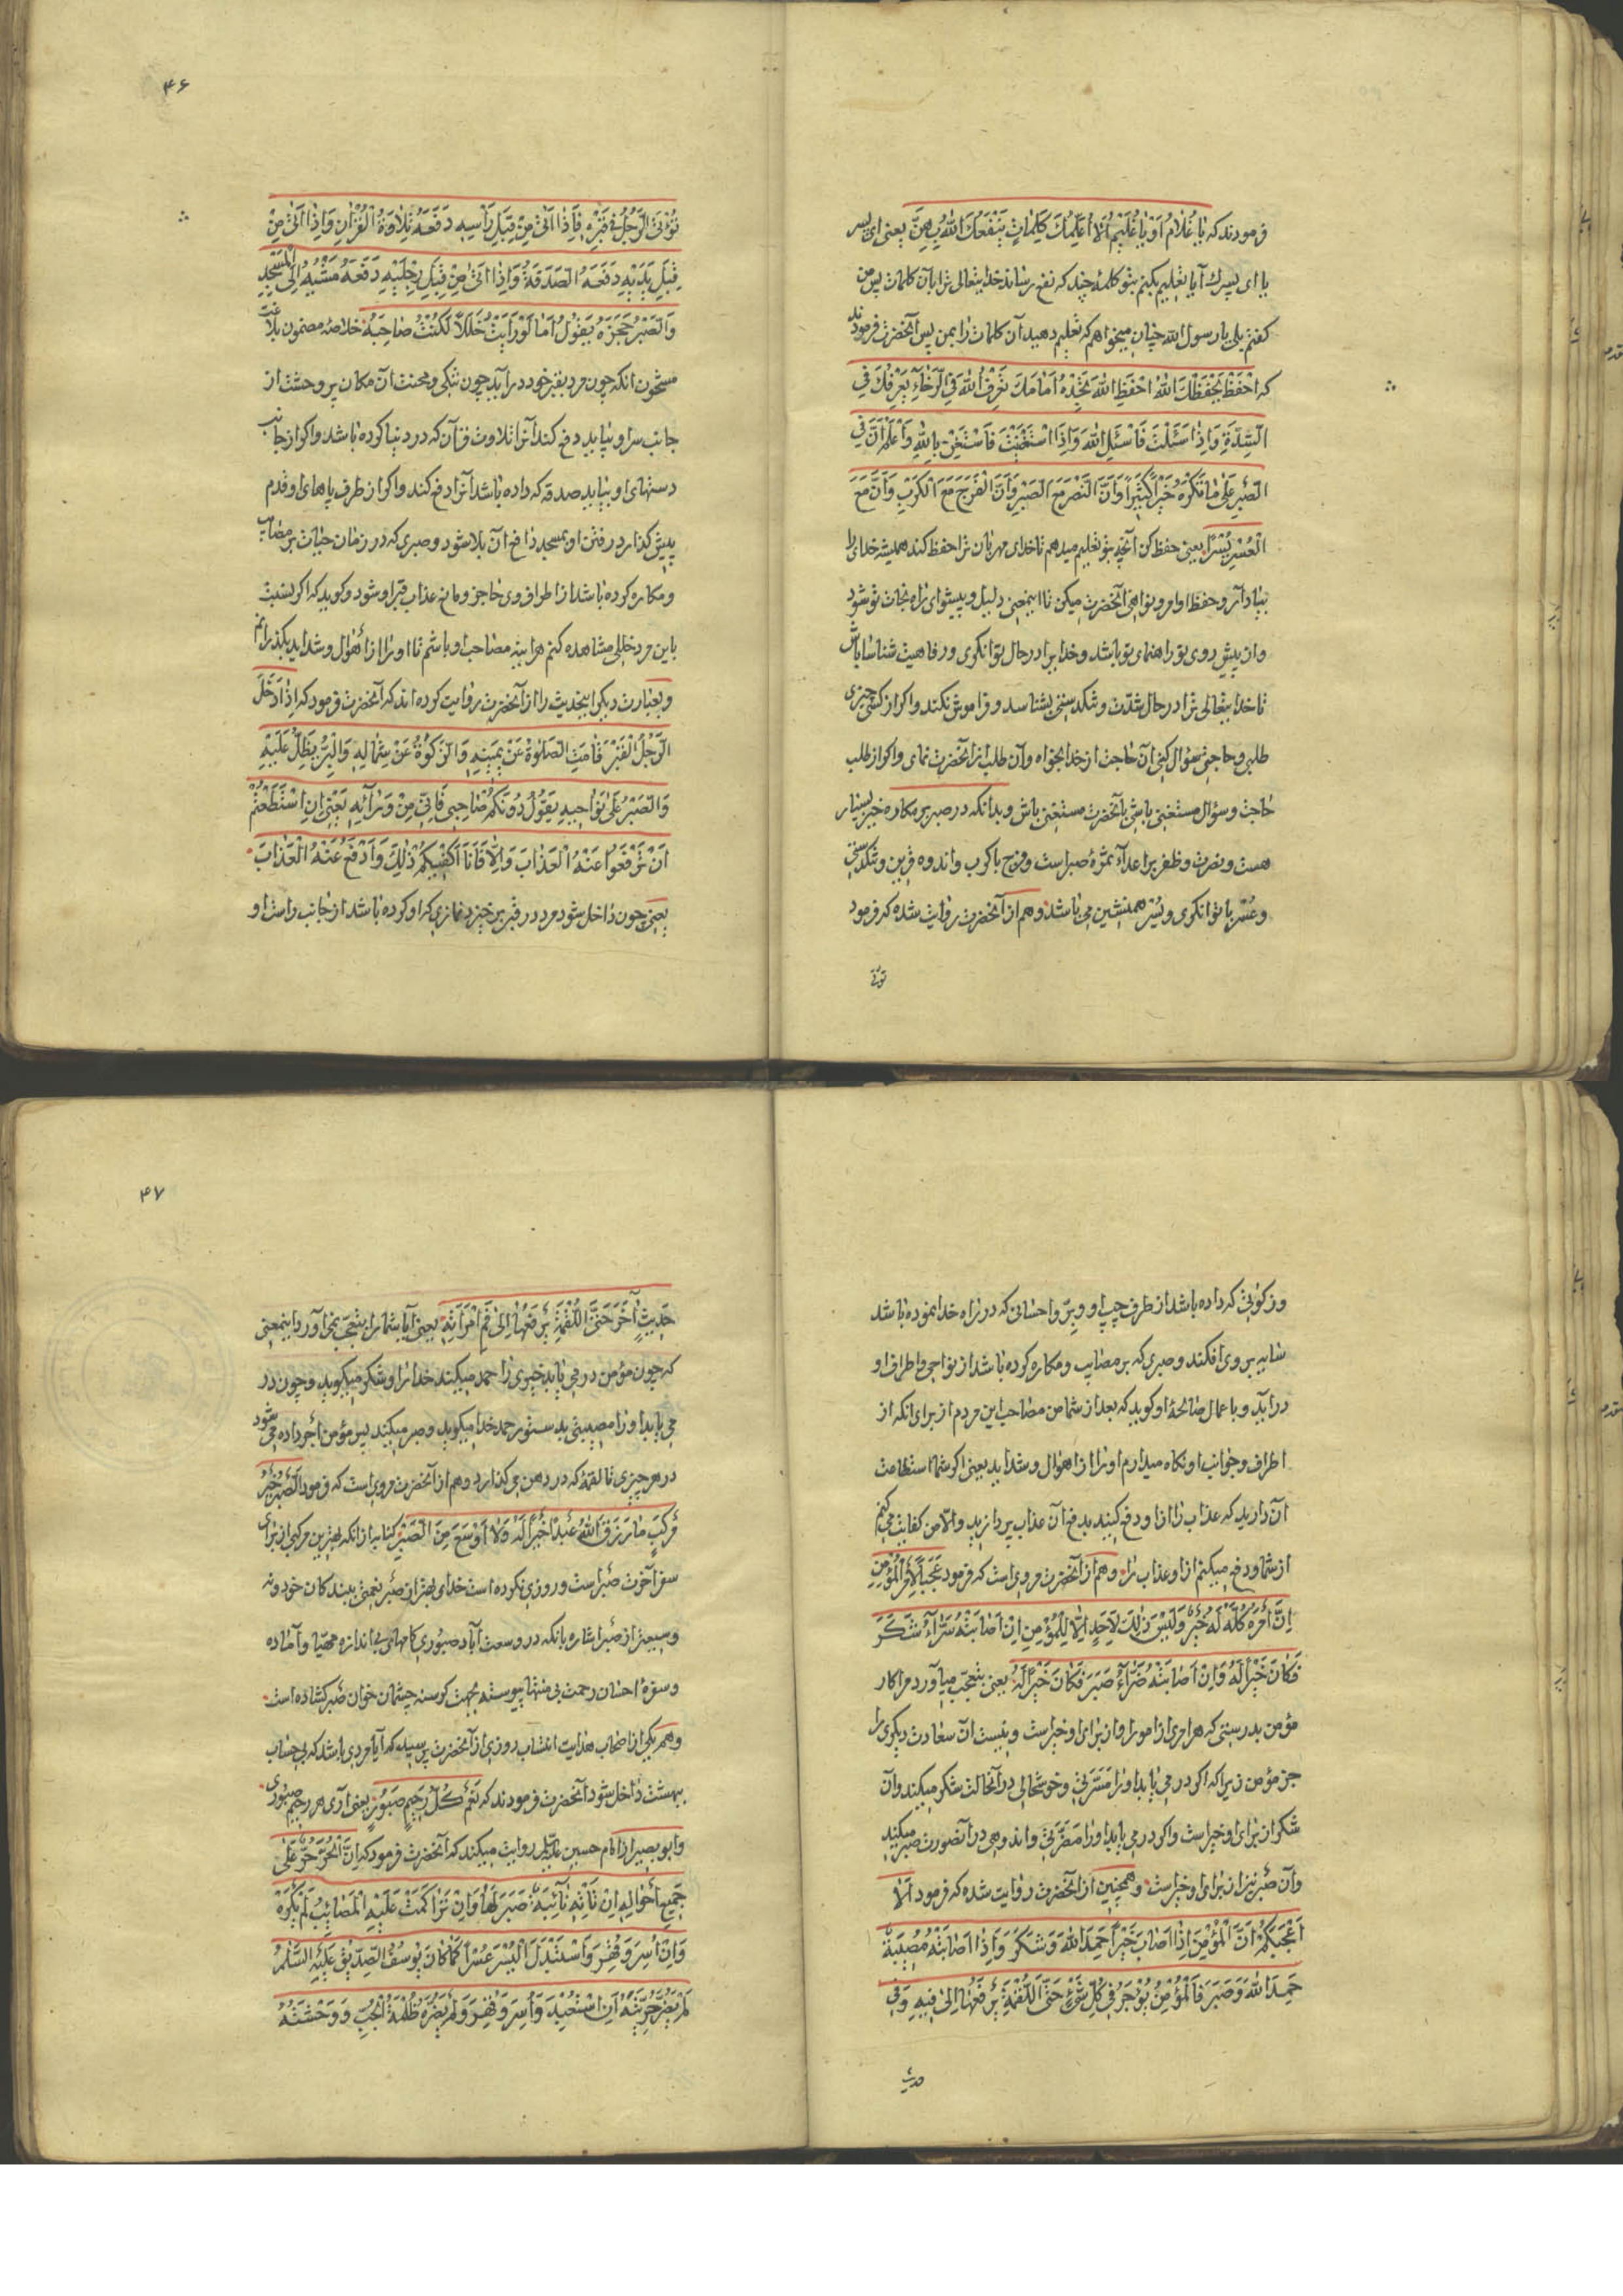 فرمودند که یا غُلامُ اَوْ یا غُلَیِّمُ اَلا اُعَلِّمُكَ كَلِماتٍ یَنْفَعُكَ اللهُ بِهِنَّ یعنی ای پسر
یا ای پسرك آیا تعلیم بکنم بتو کلمهٔ چند که نفع رساند خدایتعالی ترا بآن کلمات پس من
کفتم بلی یا رسول الله چنان میخواهم که تعلیم دهید آن کلمات را بمن پس آنحضرت فرمودند
که اِحْفَظْ یَحْفَظْكَ اللهُ اِحْفَظِ اللهَ تَجِدْهُ اَمامَكَ تَعَرَّفْ اِلَی اللهِ فِی الرَّخآءِ یَعْرِفْكَ فِی
الشِّدَّةِ وَاِذا سَئَلْتَ فَاسْئَلِ اللهَ وَاِذَا اسْتَعَنْتَ فَاسْتَعِنْ بِاللهِ وَاعْلَمْ اَنَّ فِی
الصَّبْرِ عَلی ما تَکْرَهُ خَیْراً کَثیراً وَاَنَّ النَّصْرَ مَعَ الصَّبْرِ وَاَنَّ الْفَرَجَ مَعَ الْکَرْبِ وَاَنَّ مَعَ
الْعُسْرِ یُسْراً یعنی حفظ کن آنچه بتو تعلیم میدهم تا خدای مهربان ترا حفظ کند همیشه خدای را
بیاد آر و حفظ اوامر و نواهی آنحضرت میکن تا اینمعنی دلیل و پیشوای راه نجات تو شود
و از پیش روی تو راهنمای تو باشد و خدا را در حال توانکری و رفاهیت شناسا باش
تا خدایتعالی ترا در حال شدّت و تنکدستی بشناسد و فراموش نکند و اکر از کسی چیزی
طلبی و حاجتی سؤال کنی آن حاجت از خدا بخواه و آن طلب از آنحضرت نمای و اکر از طلب
حاجت و سؤال مستغنی باشی بآنحضرت مستغنی باش و بدانکه در صبر بر مکاره خیر بسیار
هست و نصرت و ظفر بر اعدآء ثمرهٔ صبر است و فرج با کرب و اندوه قرین و تنکدستی
و عُسْر با توانکری و یُسْر همنشین می باشد و هم از آنحضرت روایت شده که فرمود
تؤتی
۴۶
تُوْتَی الرَّجُلُ فِی قَبْرِهِ فَاِذا اُتِیَ مِنْ قِبَلِ رَأْسِهِ دَفَعَهُ تِلاوَةُ الْقُرْانِ وَاِذا اُتِیَ مِنْ
قِبَلِ یَدَیْهِ دَفَعَهُ الصَّدَقَةُ وَاِذا اُتِیَ مِنْ قِبَلِ رِجْلَیْهِ دَفَعَهُ مَشْیُهُ اِلَی الْمَسْجِدِ
وَالصَّبْرُ حَجَزَهُ یَقُولُ اَما لَوْ رَاَیْتُ خَلَلاً لَکُنْتُ صاحِبَهُ خلاصهٔ مضمون بلاغت
مشحون انکه چون مرد بقبر خود درآید چون تنکی و محنت آن مکان پر وحشت از
جانب سر او بیاید دفع کند آنرا تلاوت قرآن که در دنیا کرده باشد و اکر از جانب
دستهای او بیاید صدقه که داده باشد آنرا دفع کند و اکر از طرف پاهای او قدم
پیش کذارد رفتن او بمسجد دافع آن بلا شود و صبری که در زمان حیات بر مصایب
و مکاره کرده باشد از اطراف وی حاجز و مانع عذاب قبر او شود و کوید که اکر نسبت
باین مرد خللی مشاهده کنم هراینه مصاحب او باشم تا او را از اهوال و شداید بکذرانم
و بعبارت دیکر اینحدیث را از آنحضرت روایت کرده اند که آنحضرت فرمود که اِذا دَخَلَ
الرَّجُلُ الْقَبْرَ قامَتِ الصَّلوةُ عَنْ یَمینِهِ وَالزَّکوةُ عَنْ شِمالِهِ وَالْبِرُّ یُظِلُّ عَلَیْهِ
وَالصَّبْرُ عَلی نَواحیهِ یَقُولُ دُونَکُمْ صاحِبی فَاِنّی مِنْ وَرآئِهِ یَعْنی اِنِ اسْتَطَعْتُمْ
اَنْ تَرْفَعُوا عَنْهُ الْعَذابَ وَاِلّا فَاَنَا اَکْفیکُمْ ذلِكَ وَاَدْفَعُ عَنْهُ الْعَذابَ
یعنی چون داخل شود مرد در قبر برخیزد نمازی که او کرده باشد از جانب راست او
و زکوتی که داده باشد از طرف چپ او و بِرّ و احسانی که در راه خدا نموده باشد
سایه بر وی افکند و صبری که بر مصایب و مکاره کرده باشد از نواحی و اطراف او
درآید و با عمال صالحهٔ او کوید که بعد از شما من مصاحب این مردم از برای انکه از
اطراف و جوانب او نکاه میدارم او را از اهوال و شداید یعنی اکر شما استطاعت
آن دارید که عذاب را از او دفع کنید بدفع آن عذاب پردازید والّا من کفایت می کنم
از شما و دفع میکنم از او عذاب را و هم از آنحضرت مرویست که فرمود عَجَباً لِاَمْرِ الْمُؤْمِنِ
اِنَّ اَمْرَهُ کُلَّهُ لَهُ خَیْرٌ وَلَیْسَ ذلِكَ لِاَحَدٍ اِلّا لِلْمُؤْمِنِ اِنْ اَصابَتْهُ سَرّآءُ شَکَرَ
فَکانَ خَیْراً لَهُ وَاِنْ اَصابَتْهُ ضَرّآءُ صَبَرَ فَکانَ خَیْراً لَهُ یعنی بتعجّب میآورد مرا کار
مؤمن بدرستی که هر امری از امور او از برای او خیر است و نیست آن سعادت دیکری را
جز مؤمن زیراکه اکر در می یابد او را مسرّتی و خوشحالی در آنحالت شکر میکند و آن
شکر از برای او خیر است و اکر در می یابد او را مضرّتی و اندوهی در آنصورت صبر میکند
و آن صبر نیز از برای او خیر است و همچنین از آنحضرت روایت شده که فرمود اَلا
اُعَجِّبُکُمْ اَنَّ الْمُؤْمِنَ اِذا اَصابَ خَیْراً حَمِدَ اللهَ وَشَکَرَ وَاِذا اَصابَتْهُ مُصیبَةٌ
حَمِدَ اللهَ وَصَبَرَ فَالْمُؤْمِنُ یُؤْجَرُ فی کُلِّ شَیْءٍ حَتَّی اللُّقْمَةِ یَرْفَعُها اِلی فیهِ وَفی
حدیث
۴۷
حَدیثٍ آخَرَ حَتَّی اللُّقْمَةِ یَرْفَعُها اِلی فَمِ امْرَاَتِهِ یعنی آیا شما را بتعجّب نمی آورد اینمعنی
که چون مؤمن در می یابد خیری را حمد میکند خدا را و شکر میکوید و چون در
می یابد او را مصیبتی بدستور حمد خدا میکوید و صبر میکند پس مؤمن اجر داده می شود
در هر چیزی تا لقمهٔ که در دهن می کذارد و هم از آنحضرت مرویست که فرمود اَلصَّبْرُ خَیْرُ
مَرْکَبٍ ما رَزَقَ اللهُ عَبْداً خَیْراً لَهُ وَلا اَوْسَعَ مِنَ الصَّبْرِ کنایه از انکه بهترین مرکبی از برای
سفر آخرت صبر است و روزی نکرده است خدای بهتر از صبر نعمتی ببندکان خود و نه
وسیعتر از صبر اشاره بانکه در وسعت آباد صبوری کامهای بی اندازه مهیّا و آماده
و سفرهٔ احسان رحمت بی منتها پیوسته بجهت کرسنه چشمان خوان صبر کشاده است
و هم یکی از اصحاب هدایت انتساب روزی از آنحضرت پرسید که آیا مردی باشد که بی حساب
ببهشت داخل شود آنحضرت فرمودند که نَعَمْ کُلُّ رَحیمٍ صَبُورٍ یعنی آری هر رحیم صبوری
و ابو بصیر از امام حسین علیه السلام روایت میکند که آنحضرت فرمود که اِنَّ الْحُرَّ حُرٌّ عَلی
جَمیعِ اَحْوالِهِ اِنْ نابَتْهُ نآئِبَةٌ صَبَرَ لَها وَاِنْ تَراکَمَتْ عَلَیْهِ الْمَصائِبُ لَمْ تَکْسِرْهُ
وَاِنْ اُسِرَ وَقُهِرَ وَاسْتَبْدَلَ الْیُسْرَ عُسْراً کَما کانَ یُوسُفُ الصِّدّیقُ عَلَیْهِ السَّلمُ
لَمْ یَضْرُرْ حُرِّیَّتَهُ اَنِ اسْتُعْبِدَ وَاُسِرَ وَقُهِرَ وَلَمْ یَضْرُرْهُ ظُلْمَةُ الْجُبِّ وَوَحْشَتُهُ